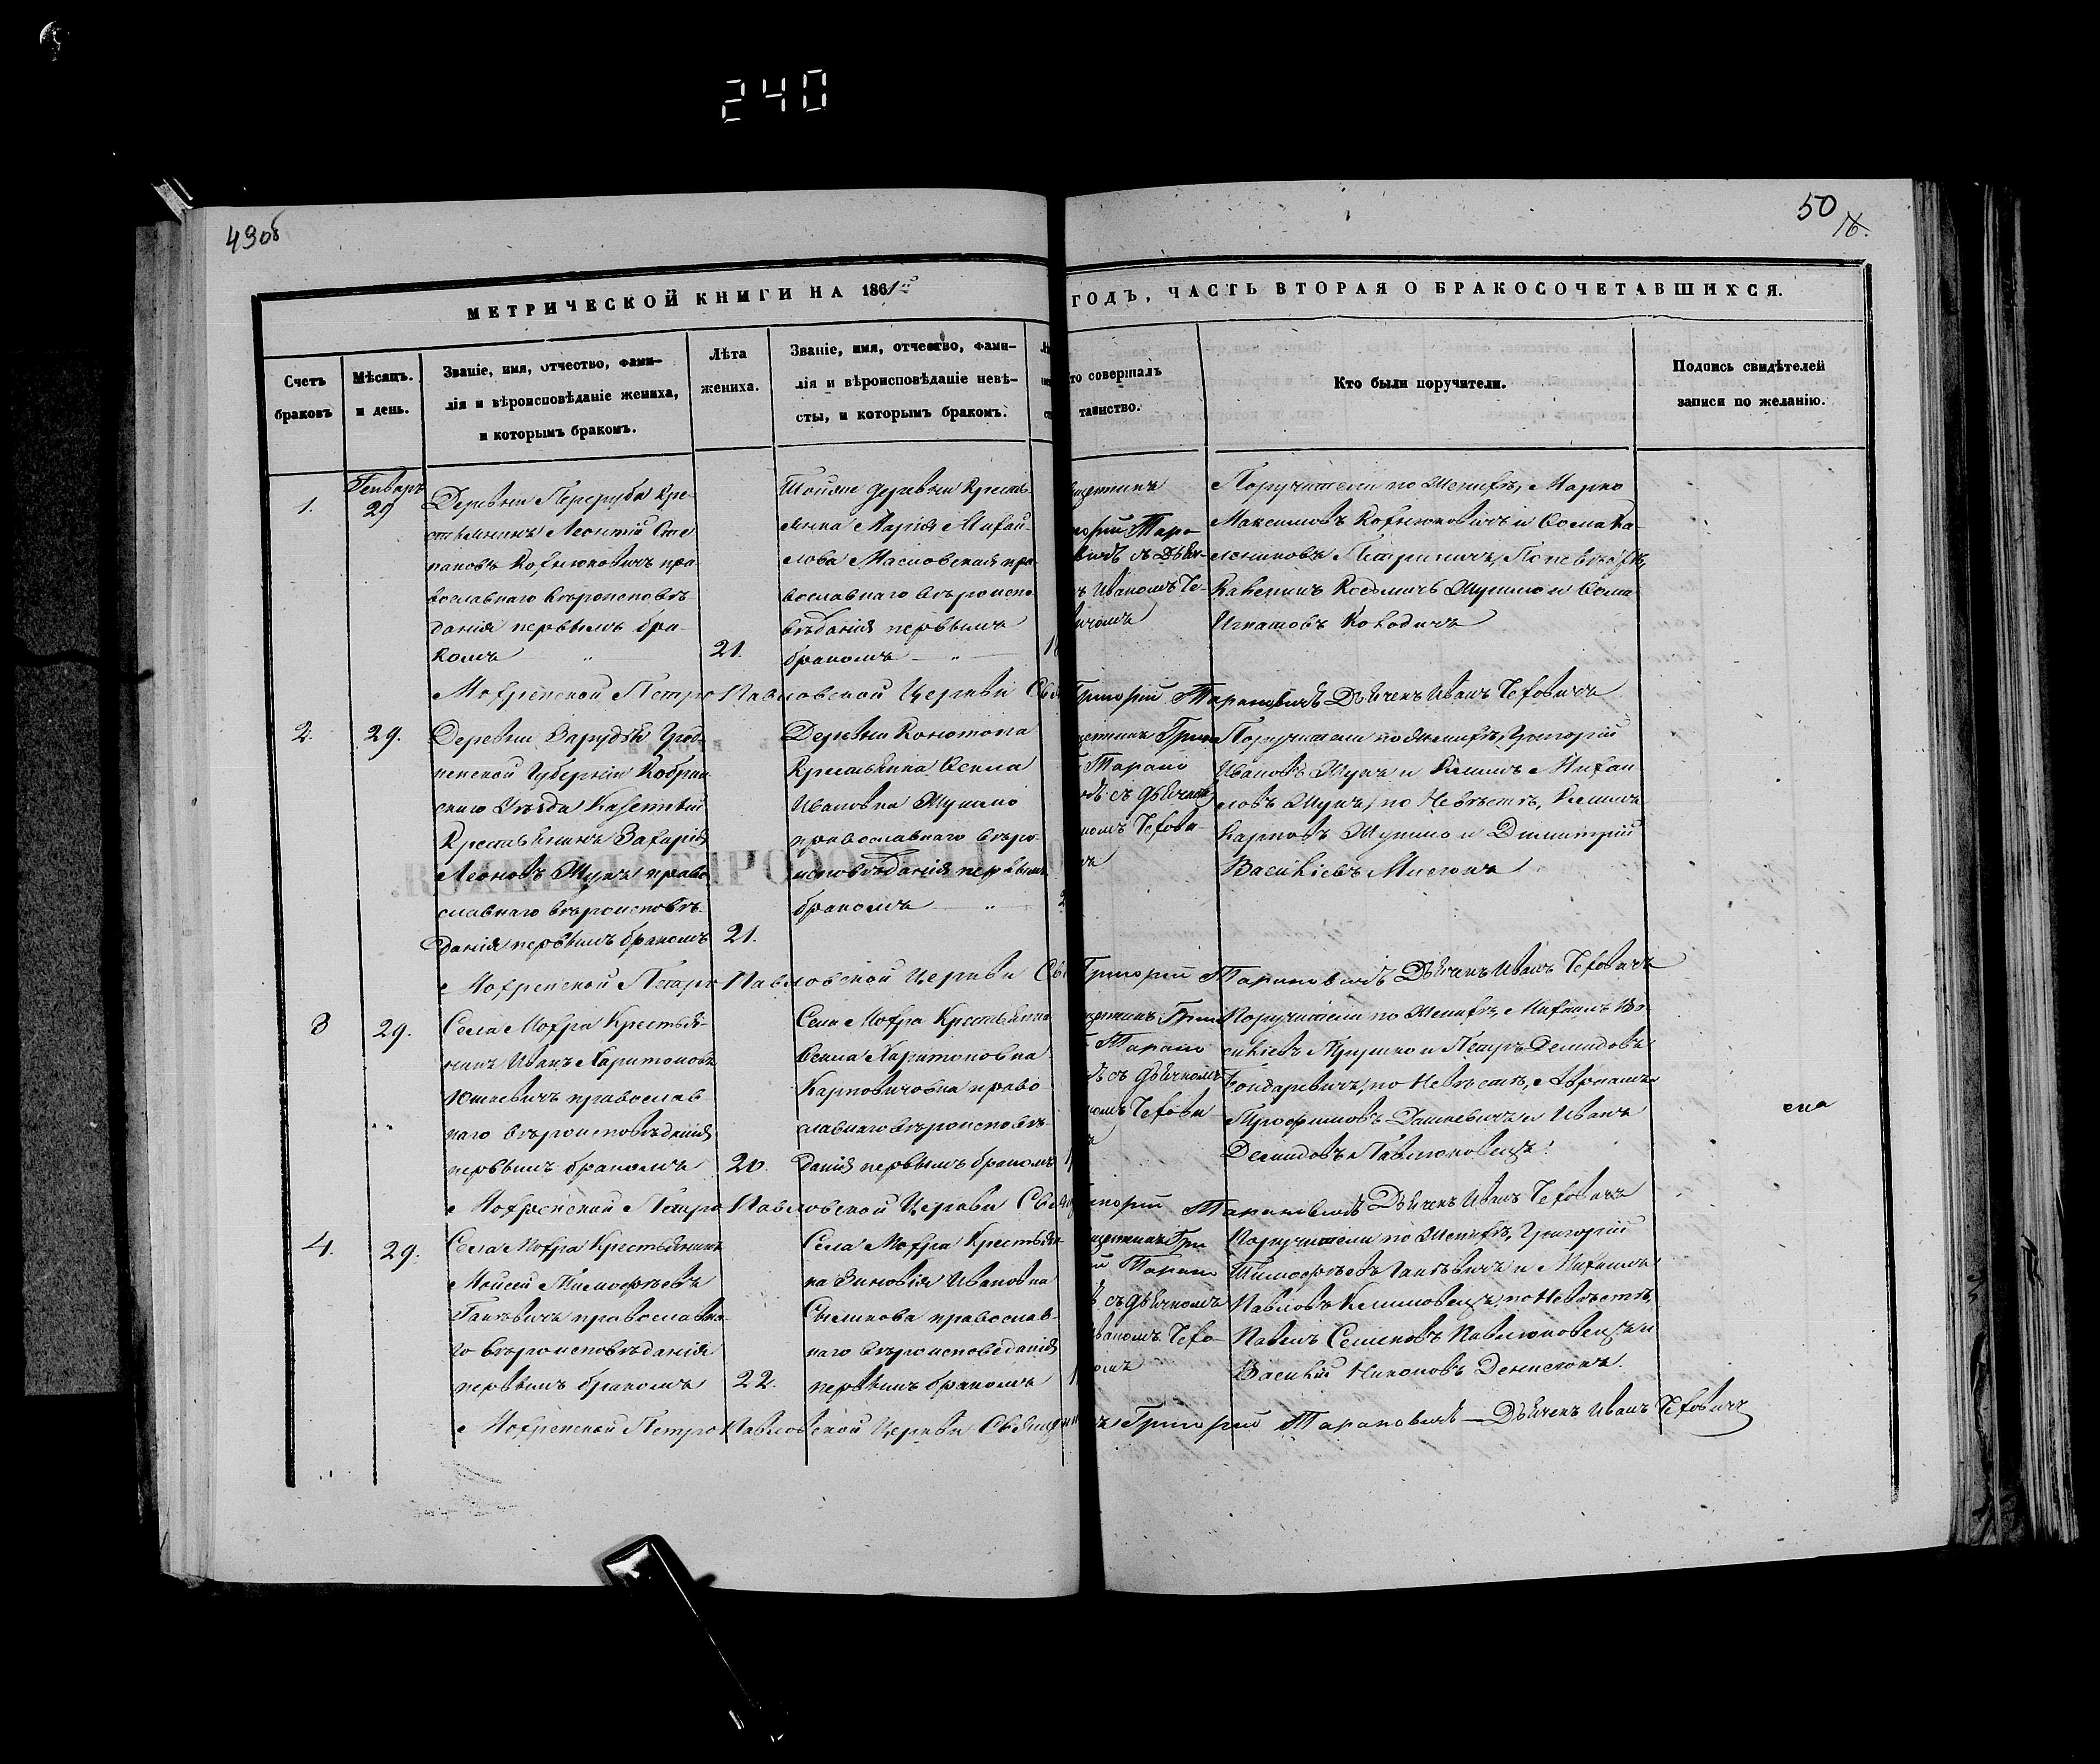 240
49об
50
МЕТРИЧЕСКОЙ КНИГИ НА 1861й
ГОДЪ, ЧАСТЬ ВТОРАЯ О БРАКОСОЧЕТАВШИХСЯ.
Счетъ
браковъ
Мѣсяцъ.
и день.
Званіе, имя, отчество, фами-
лія и вѣроисповѣданіе жениха,
и которымъ бракомъ.
Лѣта
жениха.
Званіе, имя, отчество, фами-
лія и вѣроисповѣданіе невѣ-
сты, и которымъ бракомъ.
то совершалъ
таинство.
Кто были поручители.
Подпись свидѣтелей
записи по желанію.
1.
Генварь
29
Деревни Переруба Кре-
стьянинъ Леонтій Сте
пановъ Кохнюковичъ пра
вославнаго вѣроисповѣ-
данія первымъ бра-
комъ
21.
Тойже деревни Кресть
янка Марія Михай-
лова Масловская пра
вославнаго вѣроиспо
вѣданія первымъ
бракомъ
щенникъ
горій Тара
вичъ съ Дьяч-
ъ Иваномъ Че-
Поручители по Женихѣ, Марко
Максимовъ Кохнюковичъ и Фома
Петриничъ, По невѣстѣ,
Шушко и Фома
Игнатовъ
Мохренской Петро Павловской Церкви Свя
Григорій Тарановичъ Дьячекъ Иванъ Чеховичъ
2.
29.
Деревни Зарудья Грод-
ненской Губерніи Кобрин
скаго Уѣзда Казенный
Крестьянинъ Захарій
Леоновъ право
славнаго вѣроисповѣ-
данія первымъ бракомъ
21.
Деревни Конотопа
Крестьянка Фекла
Ивановна Шушко
православнаго вѣро-
исповѣданія первымъ
бракомъ
щенникъ Григо
Тарано
съ Дьячкомъ
номъ Чехови-
Поручители по Женихѣ, Григорій
Ивановъ и Климъ Михаи
ловъ по Невѣстѣ, Климъ
Карповъ Шушко и Димитрій
Васильевъ
Мохренской Петро Павловской Церкви Свя
Григорій Тарановичъ Дьячекъ Иванъ Чеховичъ
3
29.
Села Мохра Крестья-
нинъ Иванъ Харитоновъ
Юшкевичъ православ
наго вѣроисповѣданія
первымъ бракомъ
20.
Села Мохра Крестьянка
Фекла Харитоновна
Карповичовна право
славнаго вѣроисповѣ-
данія первымъ бракомъ
щенникъ Григо
Тарано
съ Дьячкомъ
номъ Чехови
Поручители по Женихѣ, Михаилъ Ва
сильевъ и Петръ Демидовъ
Бондаревичъ, по Невѣстѣ, Абрамъ
Трофимовъ Дашкевичъ и Иванъ
Демидовъ Павлюковецъ
Мохренской Петро Павловской Церкви Свя
горій Тарановичъ Дьячекъ Иванъ Чеховичъ
4.
29.
Села Мохра Крестьянинъ
Моисей Тимофѣевъ
Ганѣвичъ православна-
го вѣроисповѣданія
первымъ бракомъ
22.
Села Мохра Крестьян-
ка Зиновія Ивановна
православ-
наго вѣроисповеданія
первымъ бракомъ
щенникъ Гри
й Тарано
съ Дьячкомъ
Иваномъ Чехо-
Поручители по Женихѣ, Григорій
Тимофѣевъ Ганѣвичъ и Михаилъ
Павловъ Климовецъ, по Невѣстѣ,
Павелъ Семеновъ Павлюковецъ и
Василій Никоновъ
Мохренской Петро Павловской Церкви Священни
къ Григорій Тарановичъ Дьячекъ Иванъ Чеховичъ